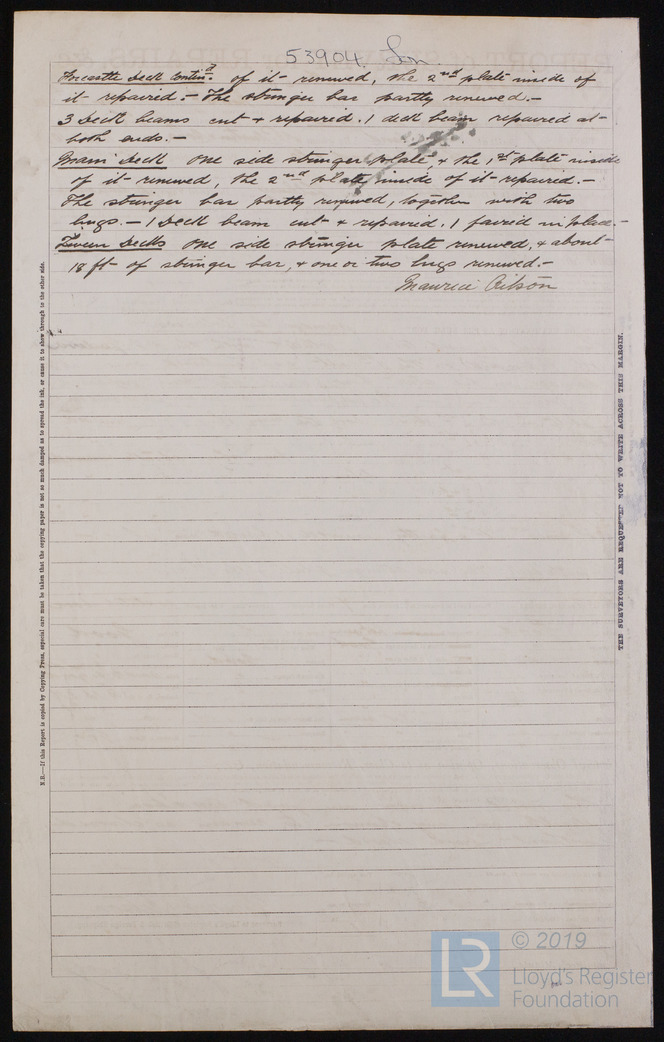 53904 Lon.
Forecastle Deck Contind. of it renewed, the 2nd plate inside of
it repaired. – The stringer bar partly renewed. –
3 Deck beams cut & repaired. 1 deck beam repaired at
both ends. –
Main Deck One side stringer plate, & the 1st plate inside
of it renewed, the 2nd plate inside of it repaired. –
The stringer bar partly renewed, together with two
lugs. – 1 Deck beam cut & repaired. 1 faired in place. –
Tween Decks One side stringer plate renewed, & about
18 ft of stringer bar, & one or two lugs renewed. –
Maurice
N.B.—If this Report is copied by Copying Press, especial care must be taken that the copying paper is not so much damped as to spread the ink, or cause it to show through to the other side.
THE SURVEYORS ARE REQUESTED NOT TO WRITE ACROSS THIS MARGIN.
LR
© 2019
Lloyd's Register
Foundation